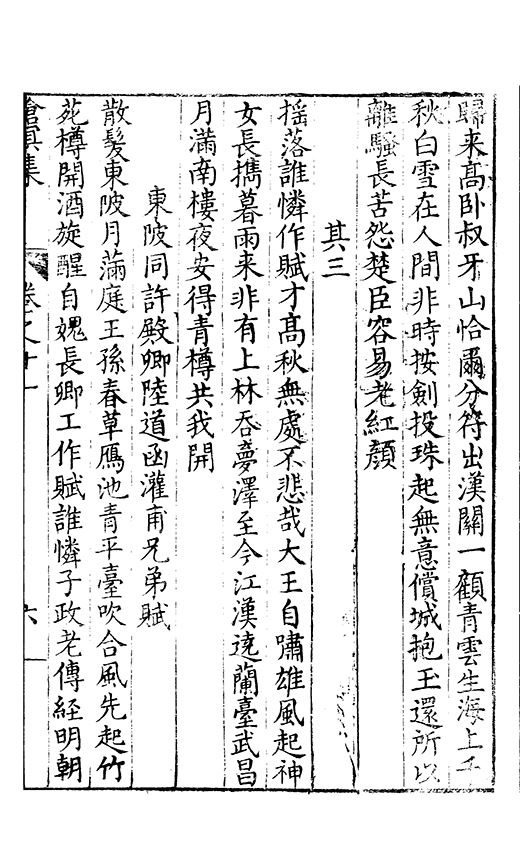 歸来髙卧叔牙山恰爾分符出漢關一顧青雲生海上千
秋白雪在人間非時按劍投珠起無意償城抱玉還所以
離騷長苦怨楚臣容易老紅顔
其三
揺落誰憐作賦才髙秋無處不悲哉大王自嘯雄風起神
女長擕暮雨来非有上林吞夢澤至今江漢遶蘭臺武昌
月滿南樓夜安得青樽共我開
東陂同許殿卿陸道函灌甫兄弟賦
散髮東陂月滿庭王孫春草鴈池青平臺吹合風先起竹
苑樽開酒旋醒自媿長卿工作賦誰憐子政老傳経明朝
滄溟集
卷之十一
六